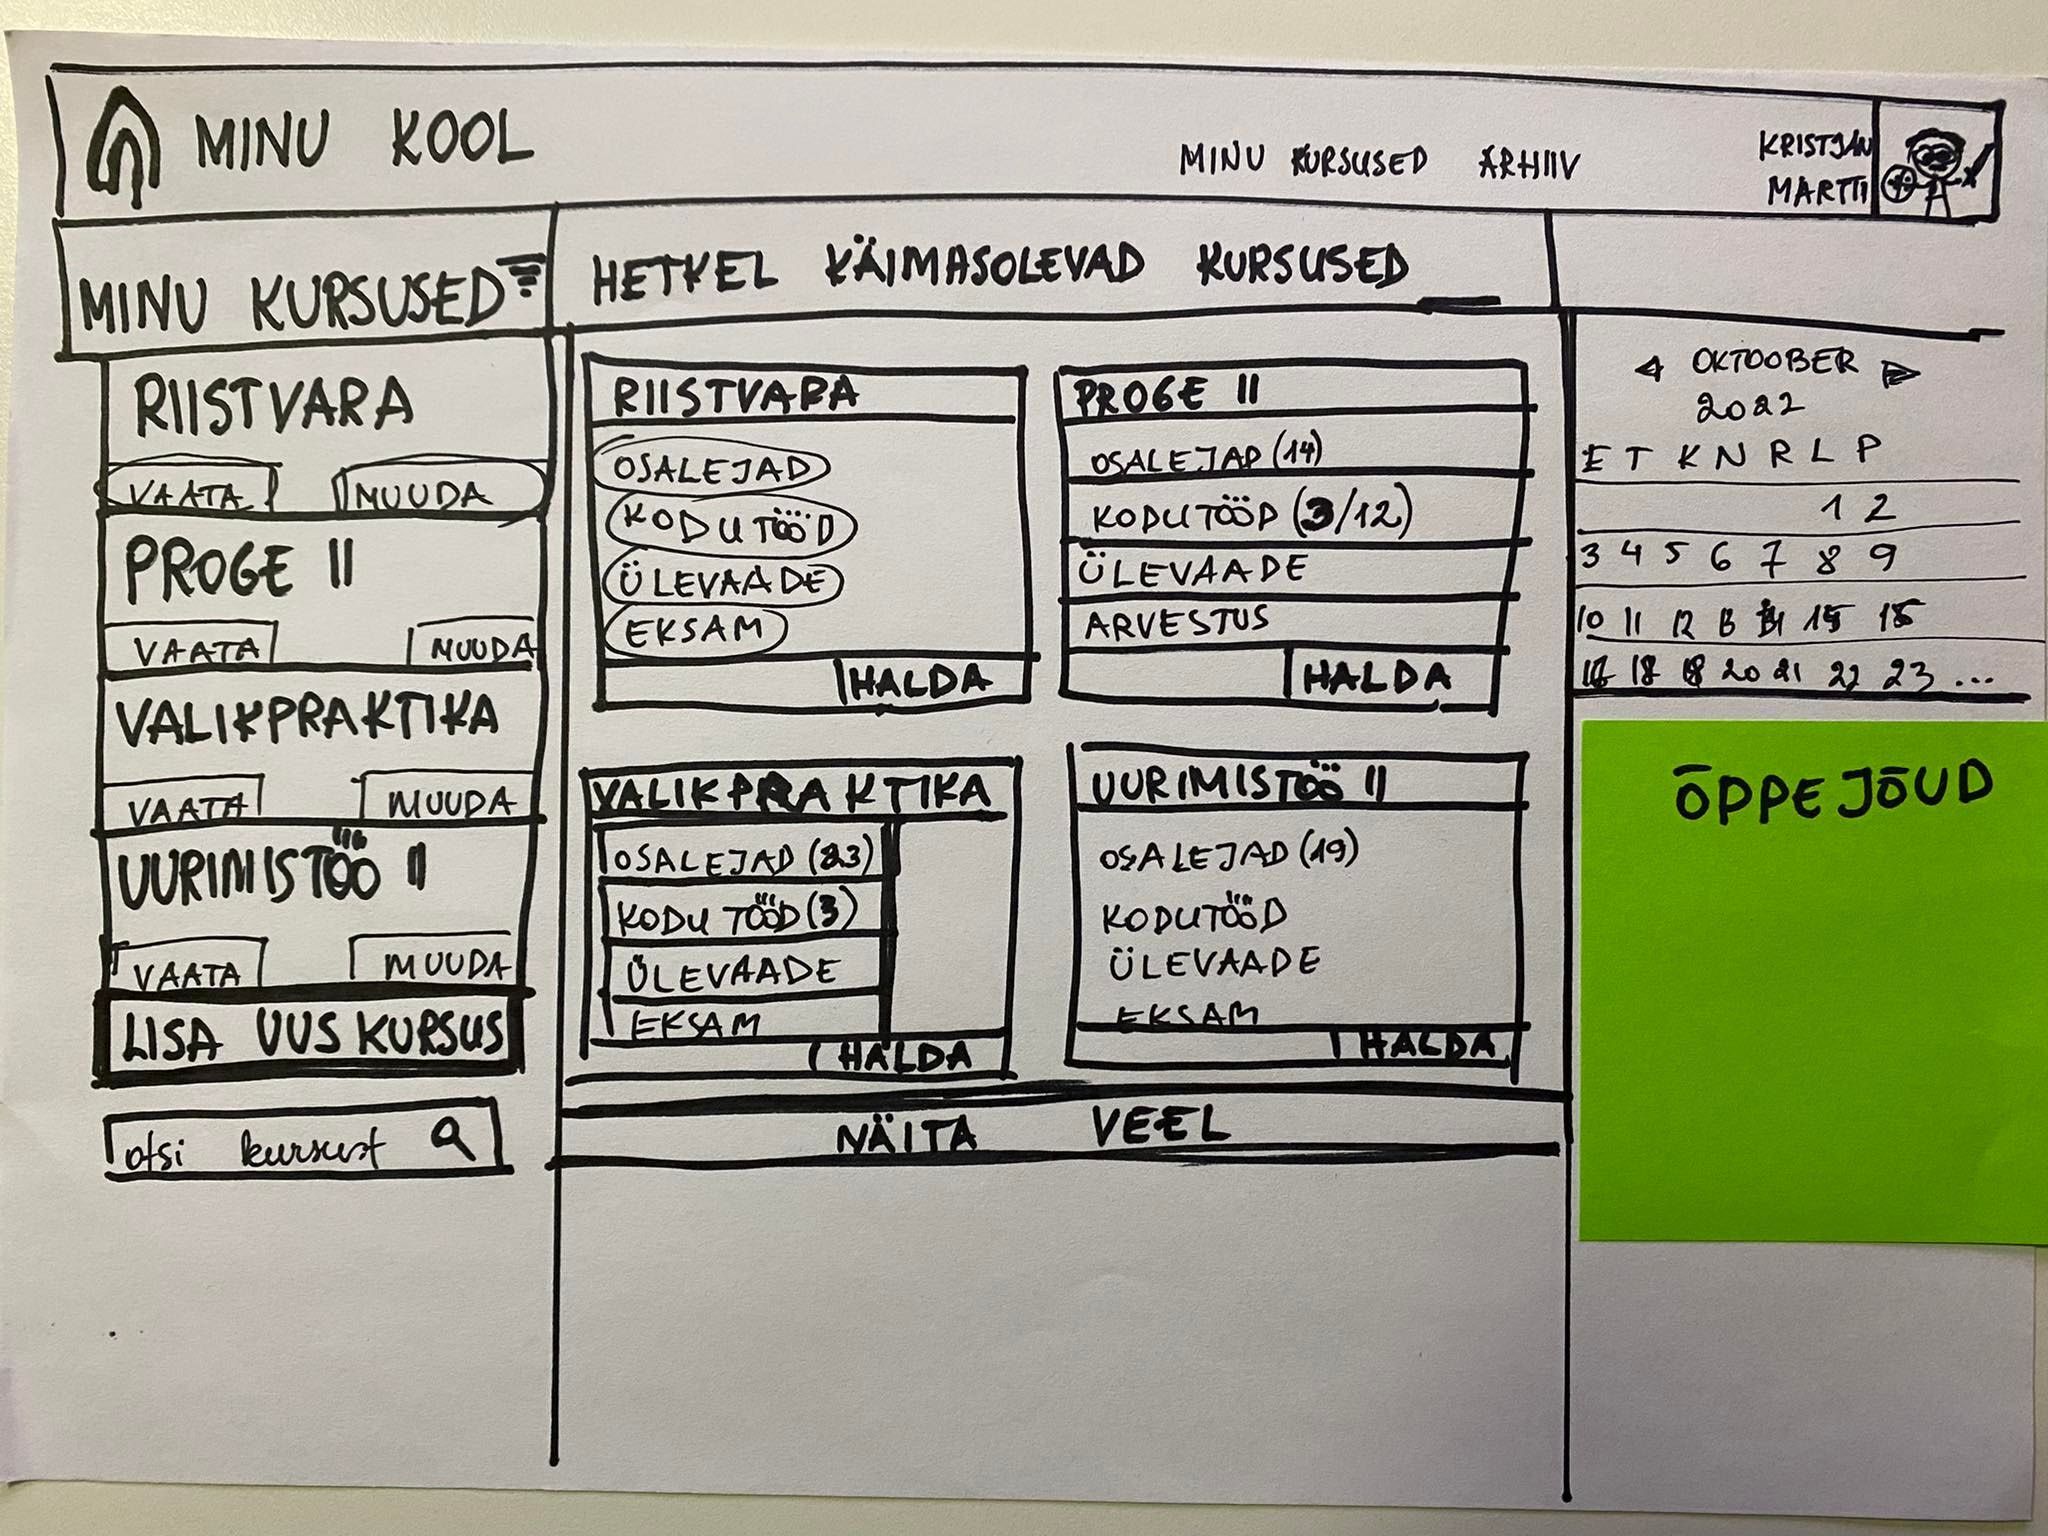 MINU KOOL
MINU KURSUSED ARHIIV
KRISTJAN
MARTTI
MINU KURSUSED
RIISTVARA
VAATA MUUDA
PROGE II
VAATA MUUDA
VALIKPRAKTIKA
VAATA MUUDA
UURIMISTÖÖ II
VAATA MUUDA
LISA UUS KURSUS
otsi kursust
HETKEL KÄIMASOLEVAD KURSUSED
RIISTVARA
OSALEJAD
KODUTÖÖD
ÜLEVAADE
EKSAM
HALDA
PROGE II
OSALEJAD (14)
KODUTÖÖD (3/12)
ÜLEVAADE
ARVESTUS
HALDA
VALIKPRAKTIKA
OSALEJAD (23)
KODUTÖÖD (3)
ÜLEVAADE
EKSAM
HALDA
UURIMISTÖÖ II
OSALEJAD (19)
KODUTÖÖD
ÜLEVAADE
EKSAM
HALDA
NÄITA VEEL
OKTOOBER
2022
E T K N R L P
1 2
3 4 5 6 7 8 9
10 11 12 13
20 21 22 23 ...
ÕPPEJÕUD